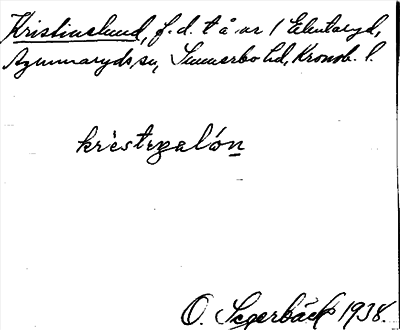 Kristinelund, f.d. t å nr 1 Ekentaryd,
Agunnaryds sn, Sunnerbo hd, Kronob. l.
krèstɪnalón
O. Segerbäck 1938.